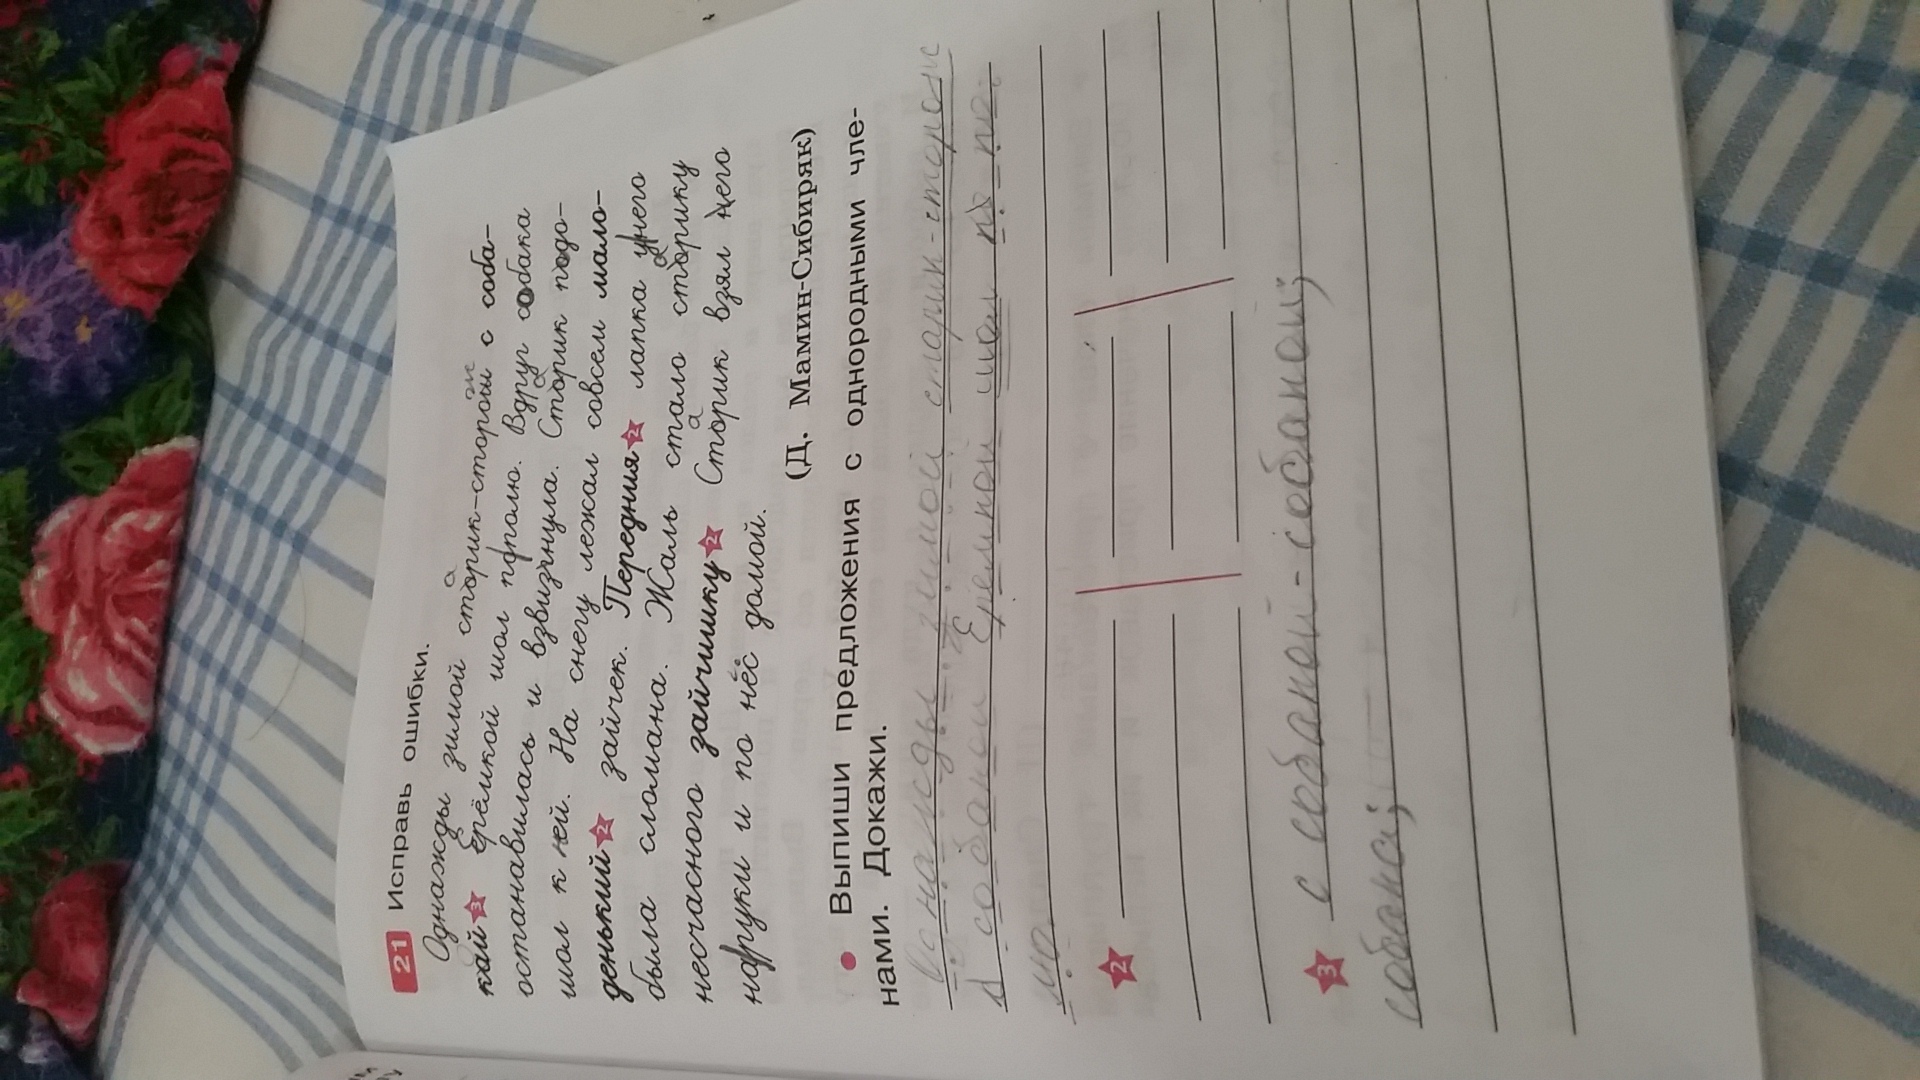 21 Исправь ошибки.
Однажды зимой сторик-сторош с соба-
кай 3 ерёмкой шол пополю. Вдруг собака
останавилась и взвизгнула. Сторик подо-
шол к ней. На снегу лежал совсем мало-
денький 2 зайчек. Передния 2 лапка унего
была сломана. Жаль стало сторику
несчасного зайчишку 2 Сторик взял него
наруки и по нёс домой.
(Д. Мамин-Сибиряк)
• Выпиши предложения с однородными чле-
нами. Докажи.
зимой старик-сторож
с собакой Ерёмкой шол по по-
2
3 с собакой - собакой;